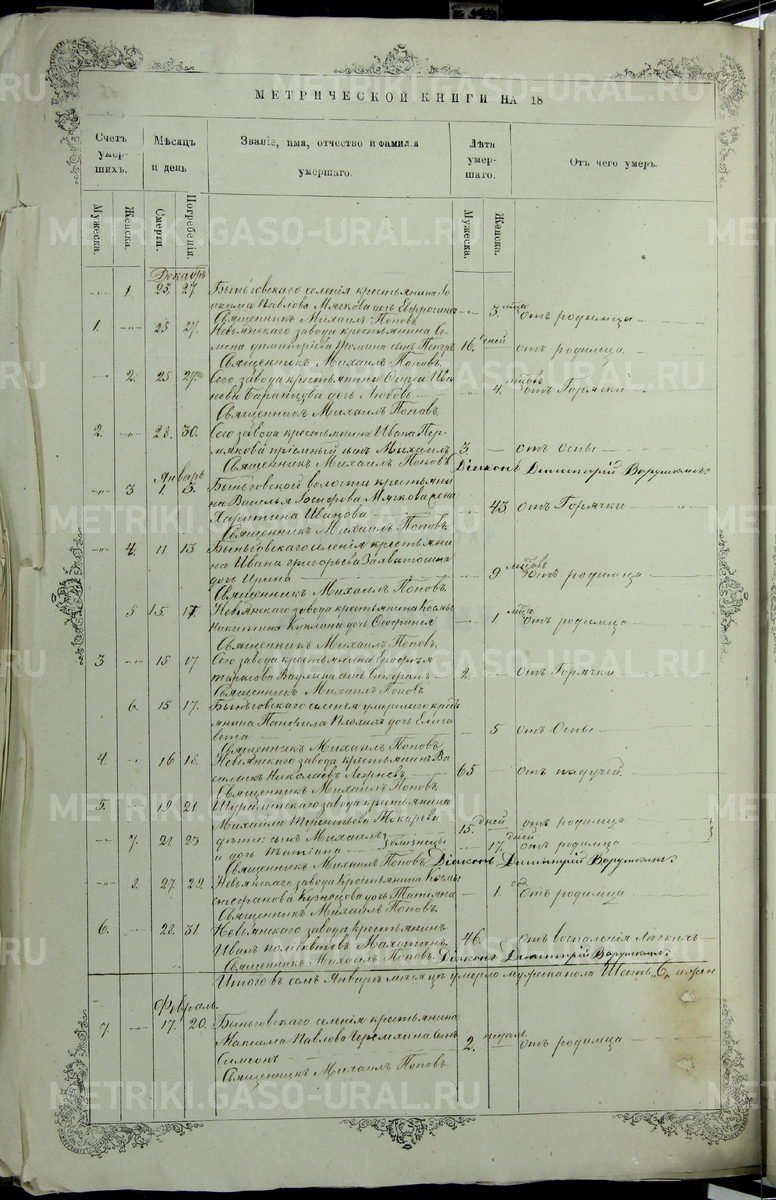 МЕТРИЧЕСКОЙ КНИГИ НА 18
Счетъ умер-шихъ. Мѣсяцъ и день Званіе, имя, отчество и фамилія умершаго. Лѣта умер-шаго. Отъ чего умеръ.
Мужеска. Женска. Смерти. Погребенія. Мужеска. Женска.
Декабрь
1 25 27 Быньговскаго селенія крестьянина
Павлова Мягкова дочь Евфросинія 3 мца отъ родимца
Священникъ Михаилъ Поповъ
1. 25 27. Невьянскаго завода крестьянина Се-
мена Димитріева сынъ Петръ 16. дней отъ родимца.
Священникъ Михаилъ Поповъ.
2. 25 27 Сего завода крестьянина Ива
нова Баранцова дочь Любовь 4. мцовъ отъ Горячки
Священникъ Михаилъ Поповъ.
2. 28. 30. Сего завода крестьянина Ивана Пер-
мякова пріемный сынъ Михаилъ 3. отъ Оспы
Священникъ Михаилъ Поповъ Діаконъ Димитрій Варушкинъ
Январь
3 1. 3. Быньговской волости крестьяни
на Василья Іосифова Мягкова жена
Харитина Иванова 43 отъ Горячки
Священникъ Михаилъ Поповъ.
4. 11 13. Быньговскаго селенія крестьяни
на Ивана Григорьева
дочь Ирина 9 мцовъ отъ родимца
Священникъ Михаилъ Поповъ.
5 15. 17. Невьянскаго завода крестьянина Космы
Никитина дочь Феофанія 1 мца отъ родимца
Священникъ Михаилъ Поповъ.
3 15 17 Сего завода крестьянина
Тарасова Ваулина сынъ 2. отъ Горячки
Священникъ Михаилъ Поповъ
6. 15 17. Быньговскаго селенья умершаго кресть
янина Панфила Плохихъ дочь Елиса
вета 5 отъ Оспы
Священникъ Михаилъ Поповъ
4. 16 18. Невьянскаго завода крестьянинъ Ва
силій Николаевъ 65 отъ падучей
Священникъ Михаилъ Поповъ
5. 19 21 Шуралинскаго завода крестьянина
Михаила Терентьева Токарева 15. дней отъ родимца
7. 21 23 дѣти: сынъ Михаилъ близнецы
и дочь Татіана 17. дней отъ родимца
Священникъ Михаилъ Поповъ Діаконъ Димитрій Варушкинъ
8. 27 29. Невьянскаго завода крестьянина Космы
Стефанова Кузнецова дочь Татіяна 1. годъ отъ родимца
Священникъ Михаилъ Поповъ.
6. 28. 31 Невьянскаго завода крестьянинъ
Иванъ Махотинъ 46. отъ воспаленія легкихъ
Священникъ Михаилъ Поповъ. Діаконъ Димитрій Варушкинъ
Итого въ семъ Январѣ мѣсяцѣ умерло мужеска пола Шесть "6"
Февраль.
7 17. 20. Быньговскаго селенія крестьянина
Максима Павлова Черемхина сынъ 2. недѣль отъ родимца
Симеонъ
Священникъ Михаилъ Поповъ
METRIKI.GASO-URAL.RU